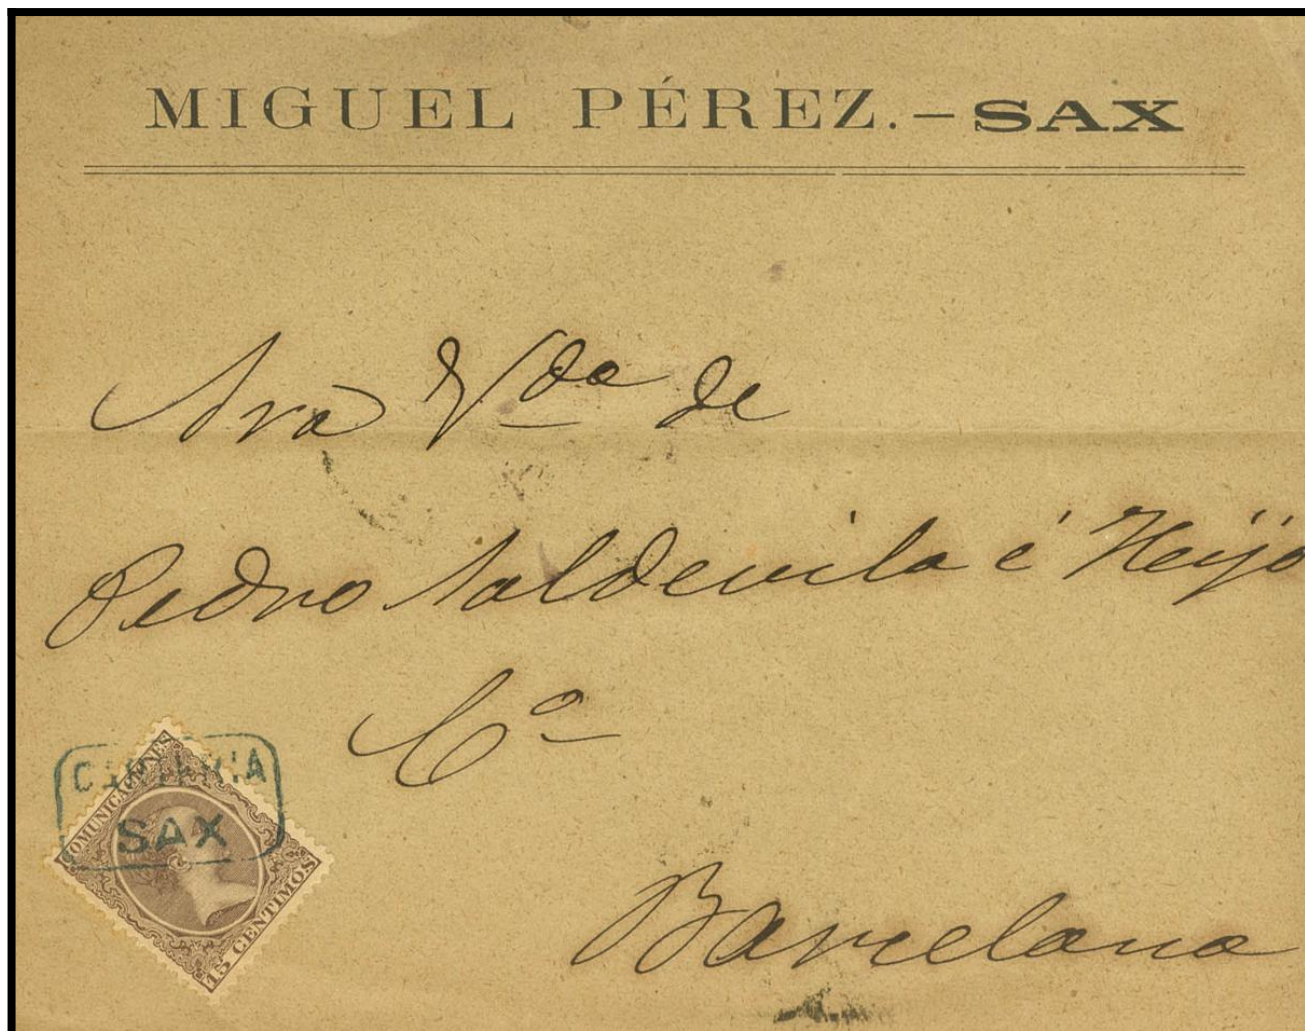 MIGUEL PÉREZ.-SAX
Sra Vda de
Pedro Soldevila é Hijo
Cª
Barcelona
CARTERIA
SAX
COMUNICACIONES
15 CENTIMOS